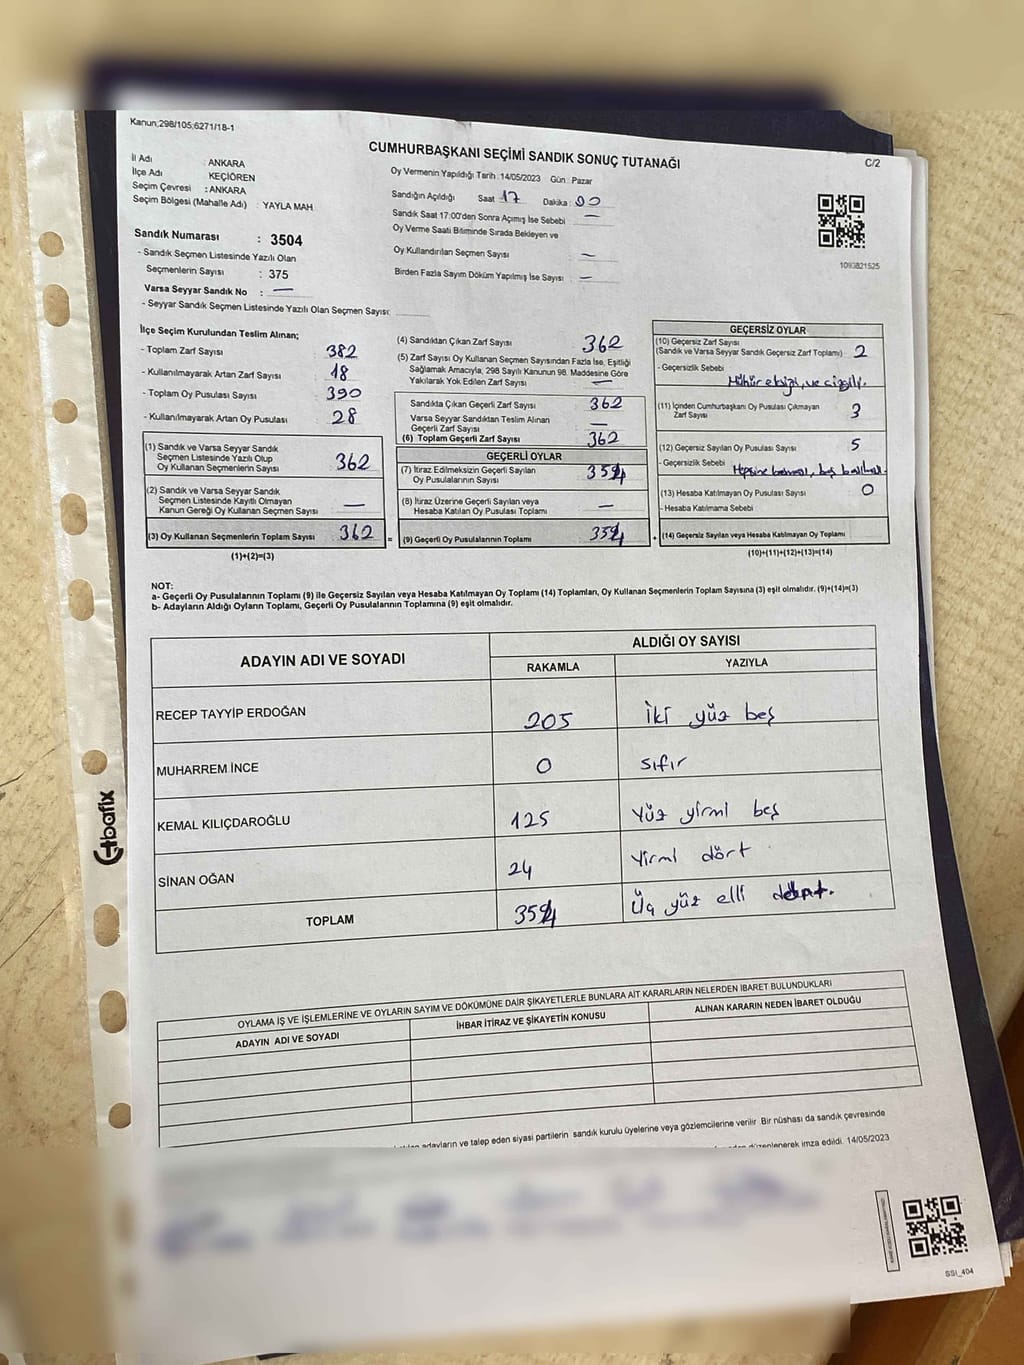 Kanun;298/105;6271/18-1
CUMHURBAŞKANI SEÇİMİ SANDIK SONUÇ TUTANAĞI
C/2
İl Adı : ANKARA
İlçe Adı KEÇİÖREN
Seçim Çevresi : ANKARA
Seçim Bölgesi (Mahalle Adı) : YAYLA MAH
Sandık Numarası : 3504
- Sandık Seçmen Listesinde Yazılı Olan
Seçmenlerin Sayısı : 375
Varsa Seyyar Sandık No : —
- Seyyar Sandık Seçmen Listesinde Yazılı Olan Seçmen Sayısı:
Oy Vermenin Yapıldığı Tarih : 14/05/2023 Gün : Pazar
Sandığın Açıldığı Saat : 17 Dakika : 00
Sandık Saat 17:00'den Sonra Açımış İse Sebebi : —
Oy Verme Saati Bitiminde Sırada Bekleyen ve
Oy Kullandırılan Seçmen Sayısı : —
Birden Fazla Sayım Döküm Yapılmış İse Sayısı : —
1093821525
İlçe Seçim Kurulundan Teslim Alınan;
- Toplam Zarf Sayısı 382
- Kullanılmayarak Artan Zarf Sayısı 18
- Toplam Oy Pusulası Sayısı 390
- Kullanılmayarak Artan Oy Pusulası 28
(1) Sandık ve Varsa Seyyar Sandık
Seçmen Listesinde Yazılı Olup
Oy Kullanan Seçmenlerin Sayısı 362
(2) Sandık ve Varsa Seyyar Sandık
Seçmen Listesinde Kayıtlı Olmayan
Kanun Gereği Oy Kullanan Seçmen Sayısı —
(3) Oy Kullanan Seçmenlerin Toplam Sayısı 362 =
(1)+(2)=(3)
(4) Sandıktan Çıkan Zarf Sayısı 362
(5) Zarf Sayısı Oy Kullanan Seçmen Sayısından Fazla İse, Eşitliği
Sağlamak Amacıyla, 298 Sayılı Kanunun 98. Maddesine Göre
Yakılarak Yok Edilen Zarf Sayısı —
Sandıkta Çıkan Geçerli Zarf Sayısı 362
Varsa Seyyar Sandıktan Teslim Alınan
Geçerli Zarf Sayısı —
(6) Toplam Geçerli Zarf Sayısı 362
GEÇERLİ OYLAR
(7) İtiraz Edilmeksizin Geçerli Sayılan
Oy Pusulalarının Sayısı 354
(8) İtiraz Üzerine Geçerli Sayılan veya
Hesaba Katılan Oy Pusulası Toplamı —
(9) Geçerli Oy Pusulalarının Toplamı 354 +
GEÇERSİZ OYLAR
(10) Geçersiz Zarf Sayısı
(Sandık ve Varsa Seyyar Sandık Geçersiz Zarf Toplamı) 2
- Geçersizlik Sebebi
Mühür eksiği, ve çizgili.
(11) İçinden Cumhurbaşkanı Oy Pusulası Çıkmayan
Zarf Sayısı 3
(12) Geçersiz Sayılan Oy Pusulası Sayısı 5
- Geçersizlik Sebebi Hepsine
(13) Hesaba Katılmayan Oy Pusulası Sayısı 0
- Hesaba Katılmama Sebebi
(14) Geçersiz Sayılan veya Hesaba Katılmayan Oy Toplamı
(10)+(11)+(12)+(13)=(14)
NOT:
a- Geçerli Oy Pusulalarının Toplamı (9) ile Geçersiz Sayılan veya Hesaba Katılmayan Oy Toplamı (14) Toplamları, Oy Kullanan Seçmenlerin Toplam Sayısına (3) eşit olmalıdır. (9)+(14)=(3)
b- Adayların Aldığı Oyların Toplamı, Geçerli Oy Pusulalarının Toplamına (9) eşit olmalıdır.
ADAYIN ADI VE SOYADI ALDIĞI OY SAYISI
RAKAMLA YAZIYLA
RECEP TAYYİP ERDOĞAN 205 İki yüz beş
MUHARREM İNCE 0 sıfır
KEMAL KILIÇDAROĞLU 125 Yüz yirmi beş
SİNAN OĞAN 24 Yirmi dört
TOPLAM 354 Üç yüz elli dört.
OYLAMA İŞ VE İŞLEMLERİNE VE OYLARIN SAYIM VE DÖKÜMÜNE DAİR ŞİKAYETLERLE BUNLARA AİT KARARLARIN NELERDEN İBARET BULUNDUKLARI
ADAYIN ADI VE SOYADI İHBAR İTİRAZ VE ŞİKAYETİN KONUSU ALINAN KARARIN NEDEN İBARET OLDUĞU
adayların ve talep eden siyasi partilerin sandık kurulu üyelerine veya gözlemcilerine verilir. Bir nüshası da sandık çevresinde
düzenlenerek imza edildi. 14/05/2023
SSI_404
tbafix